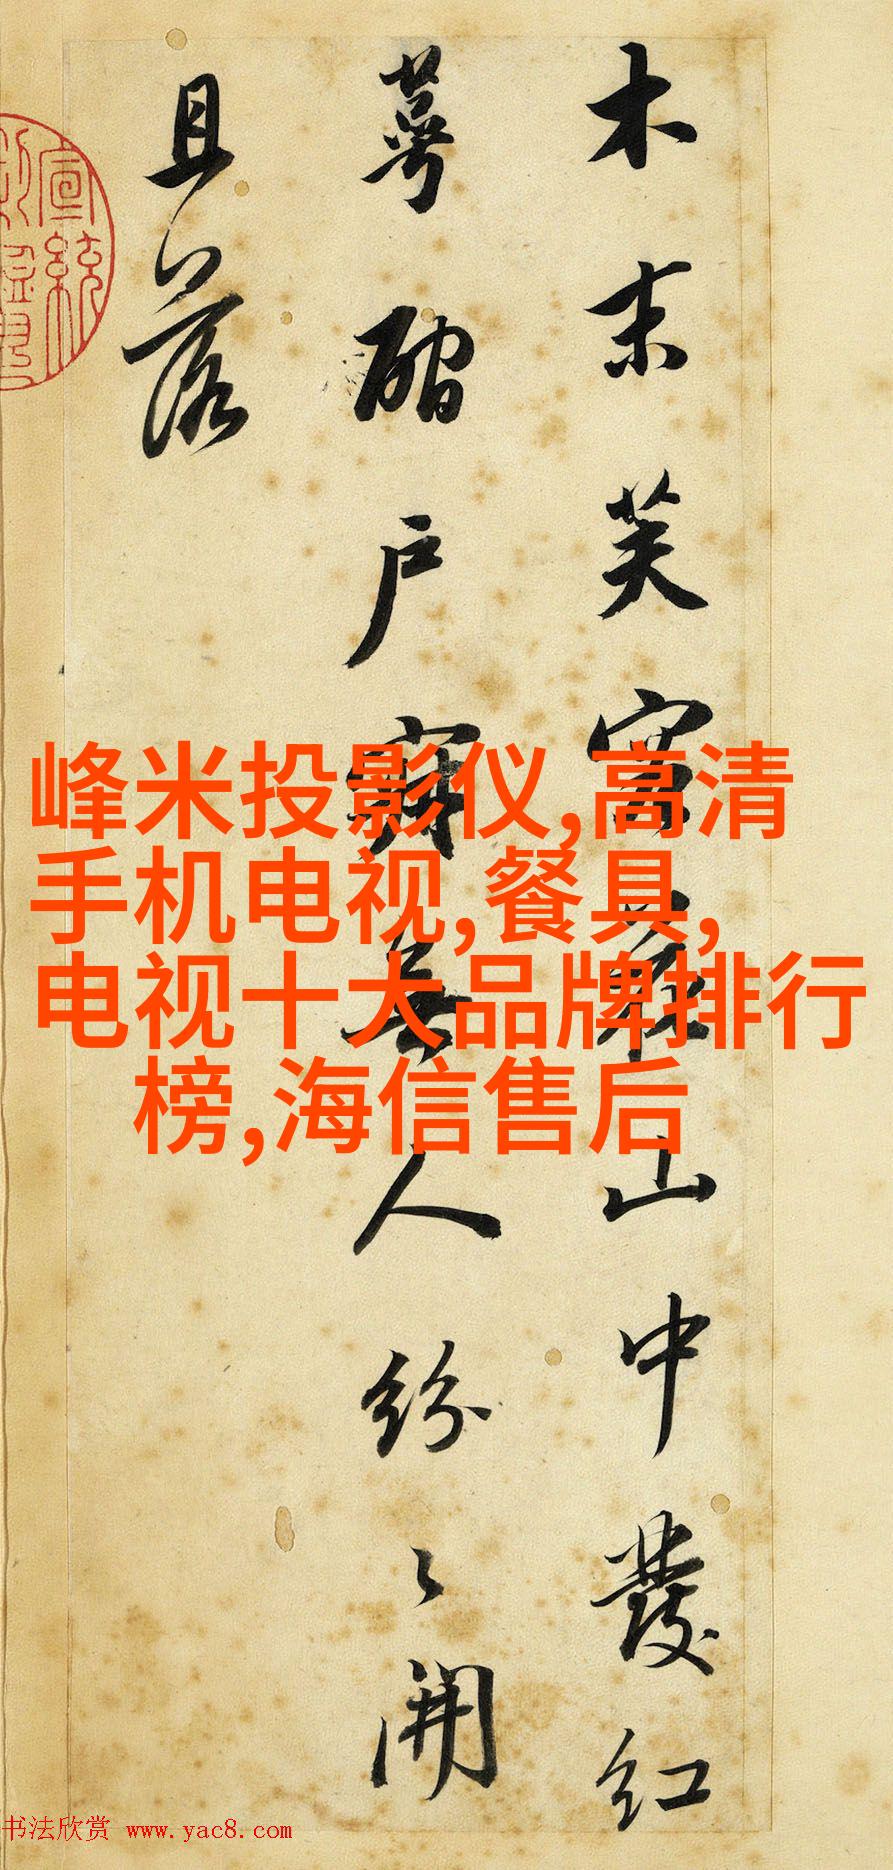 木末芙蓉花山中發紅
萼磵戶寂無人紛〻開
且落
宣統
峰米投影仪,高清
手机电视,餐具,
电视十大品牌排行
榜,海信售后
书法欣赏 www.yac8.com